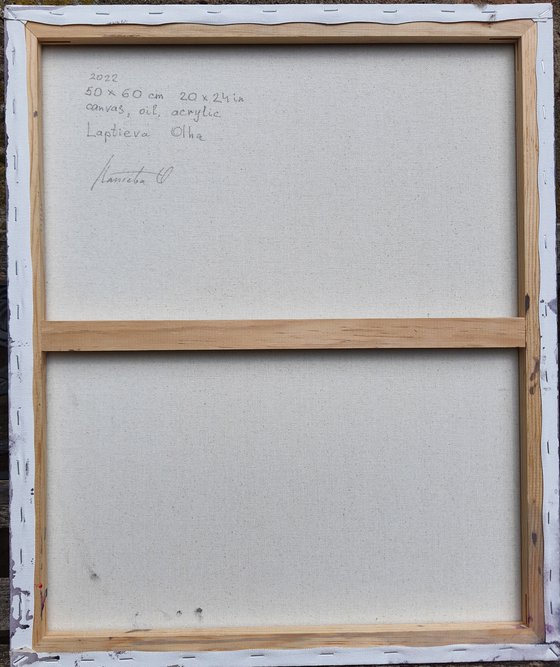 2022
50 x 60 cm 20 x 24 in
canvas, oil, acrylic
Laptieva Olha
Лаптєва О